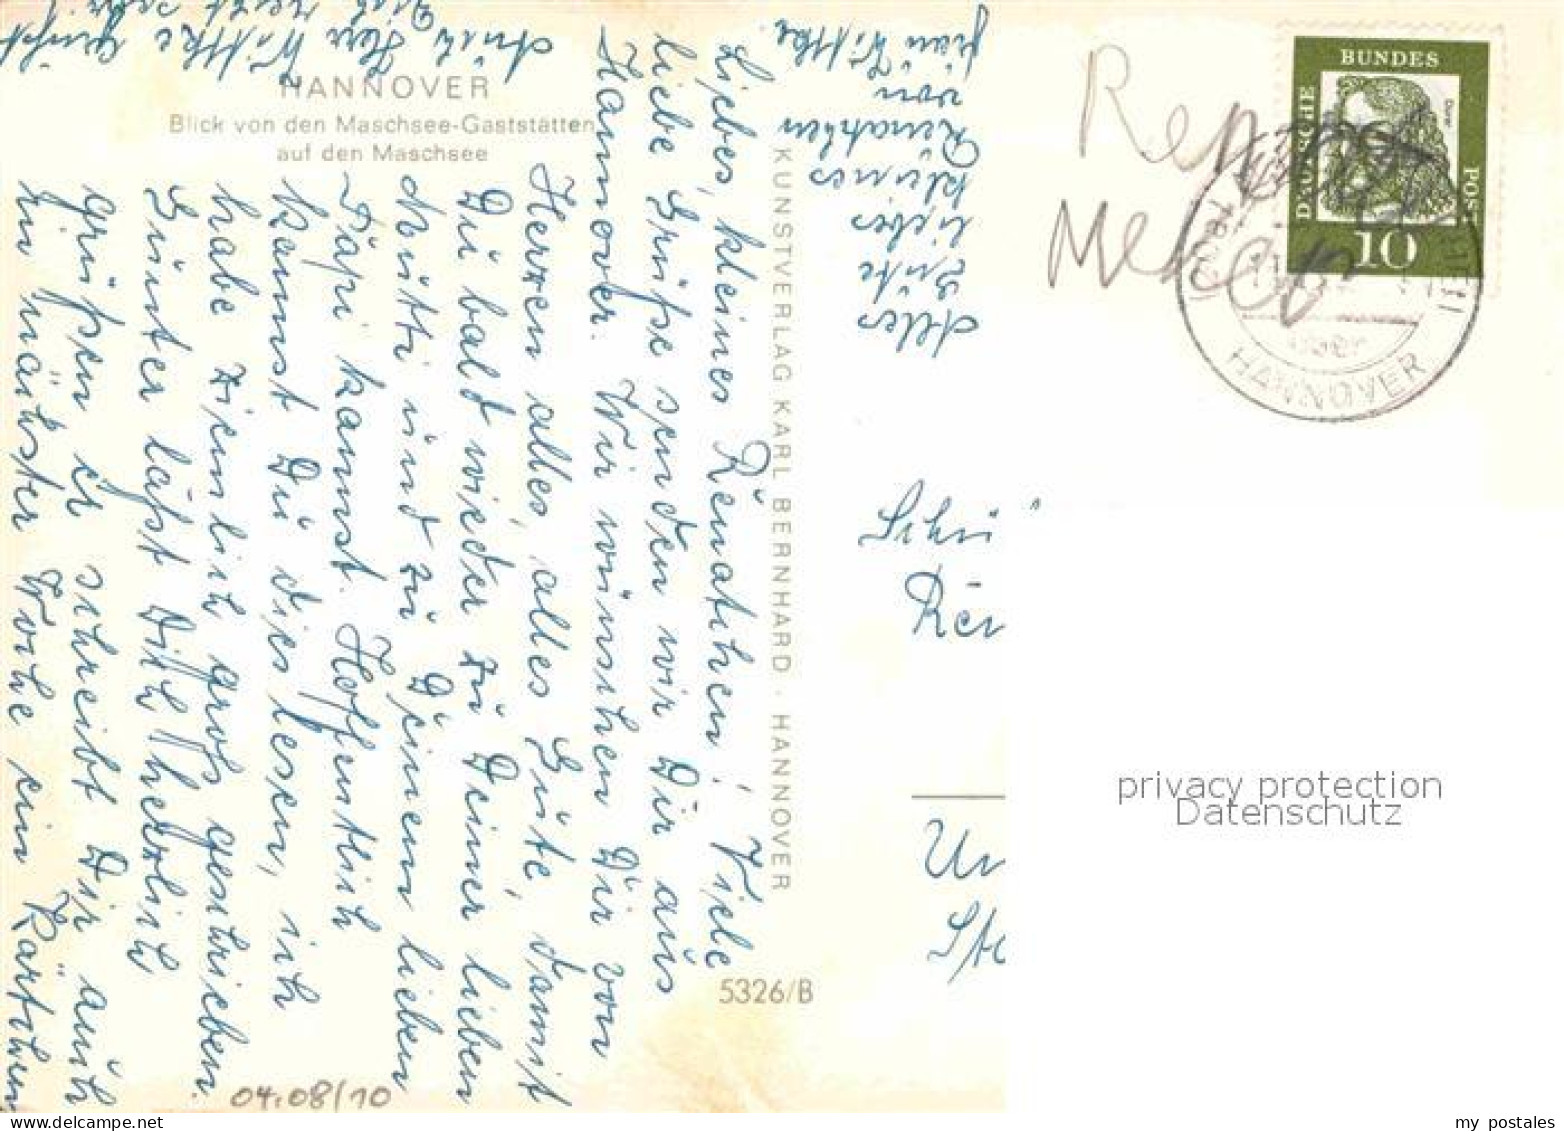 HANNOVER
Blick von den Maschsee-Gaststätten
auf den Maschsee
KUNSTVERLAG KARL BERNHARD · HANNOVER
5326/B
Liebes, kleines Renatchen! Viele
liebe Grüße senden wir Dir aus
Hannover. Wir wünschen Dir von
Herzen alles, alles Gute, damit
Du bald wieder zu Deiner lieben
Mutti und zu Deinem lieben
Papi kannst. Hoffentlich
kannst Du dies lesen, ich
habe ziemlich groß geschrieben.
Günter läßt Dich herzlich
grüßen er schreibt Dir auch
in nächster Woche ein Kärtchen
Auch Herr Wittke grüßt
Dich recht sehr!
Alles
Gute
liebes
kleines
Renatchen
von
Frau Wittke
DEUTSCHE
BUNDES
POST
10
Dürer
HANNOVER
Schü
Ren
Un
04.08/10
privacy protection
Datenschutz
my postales